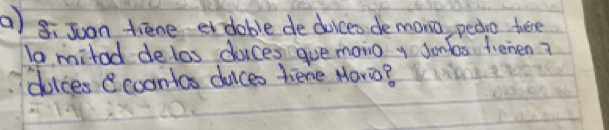 a) Si Juan tiene el doble de dulces de mario, pedro tiene
la mitad de los dulces que mario y Juntos tienen 7
dulces ¿cuantos dulces tiene Mario?